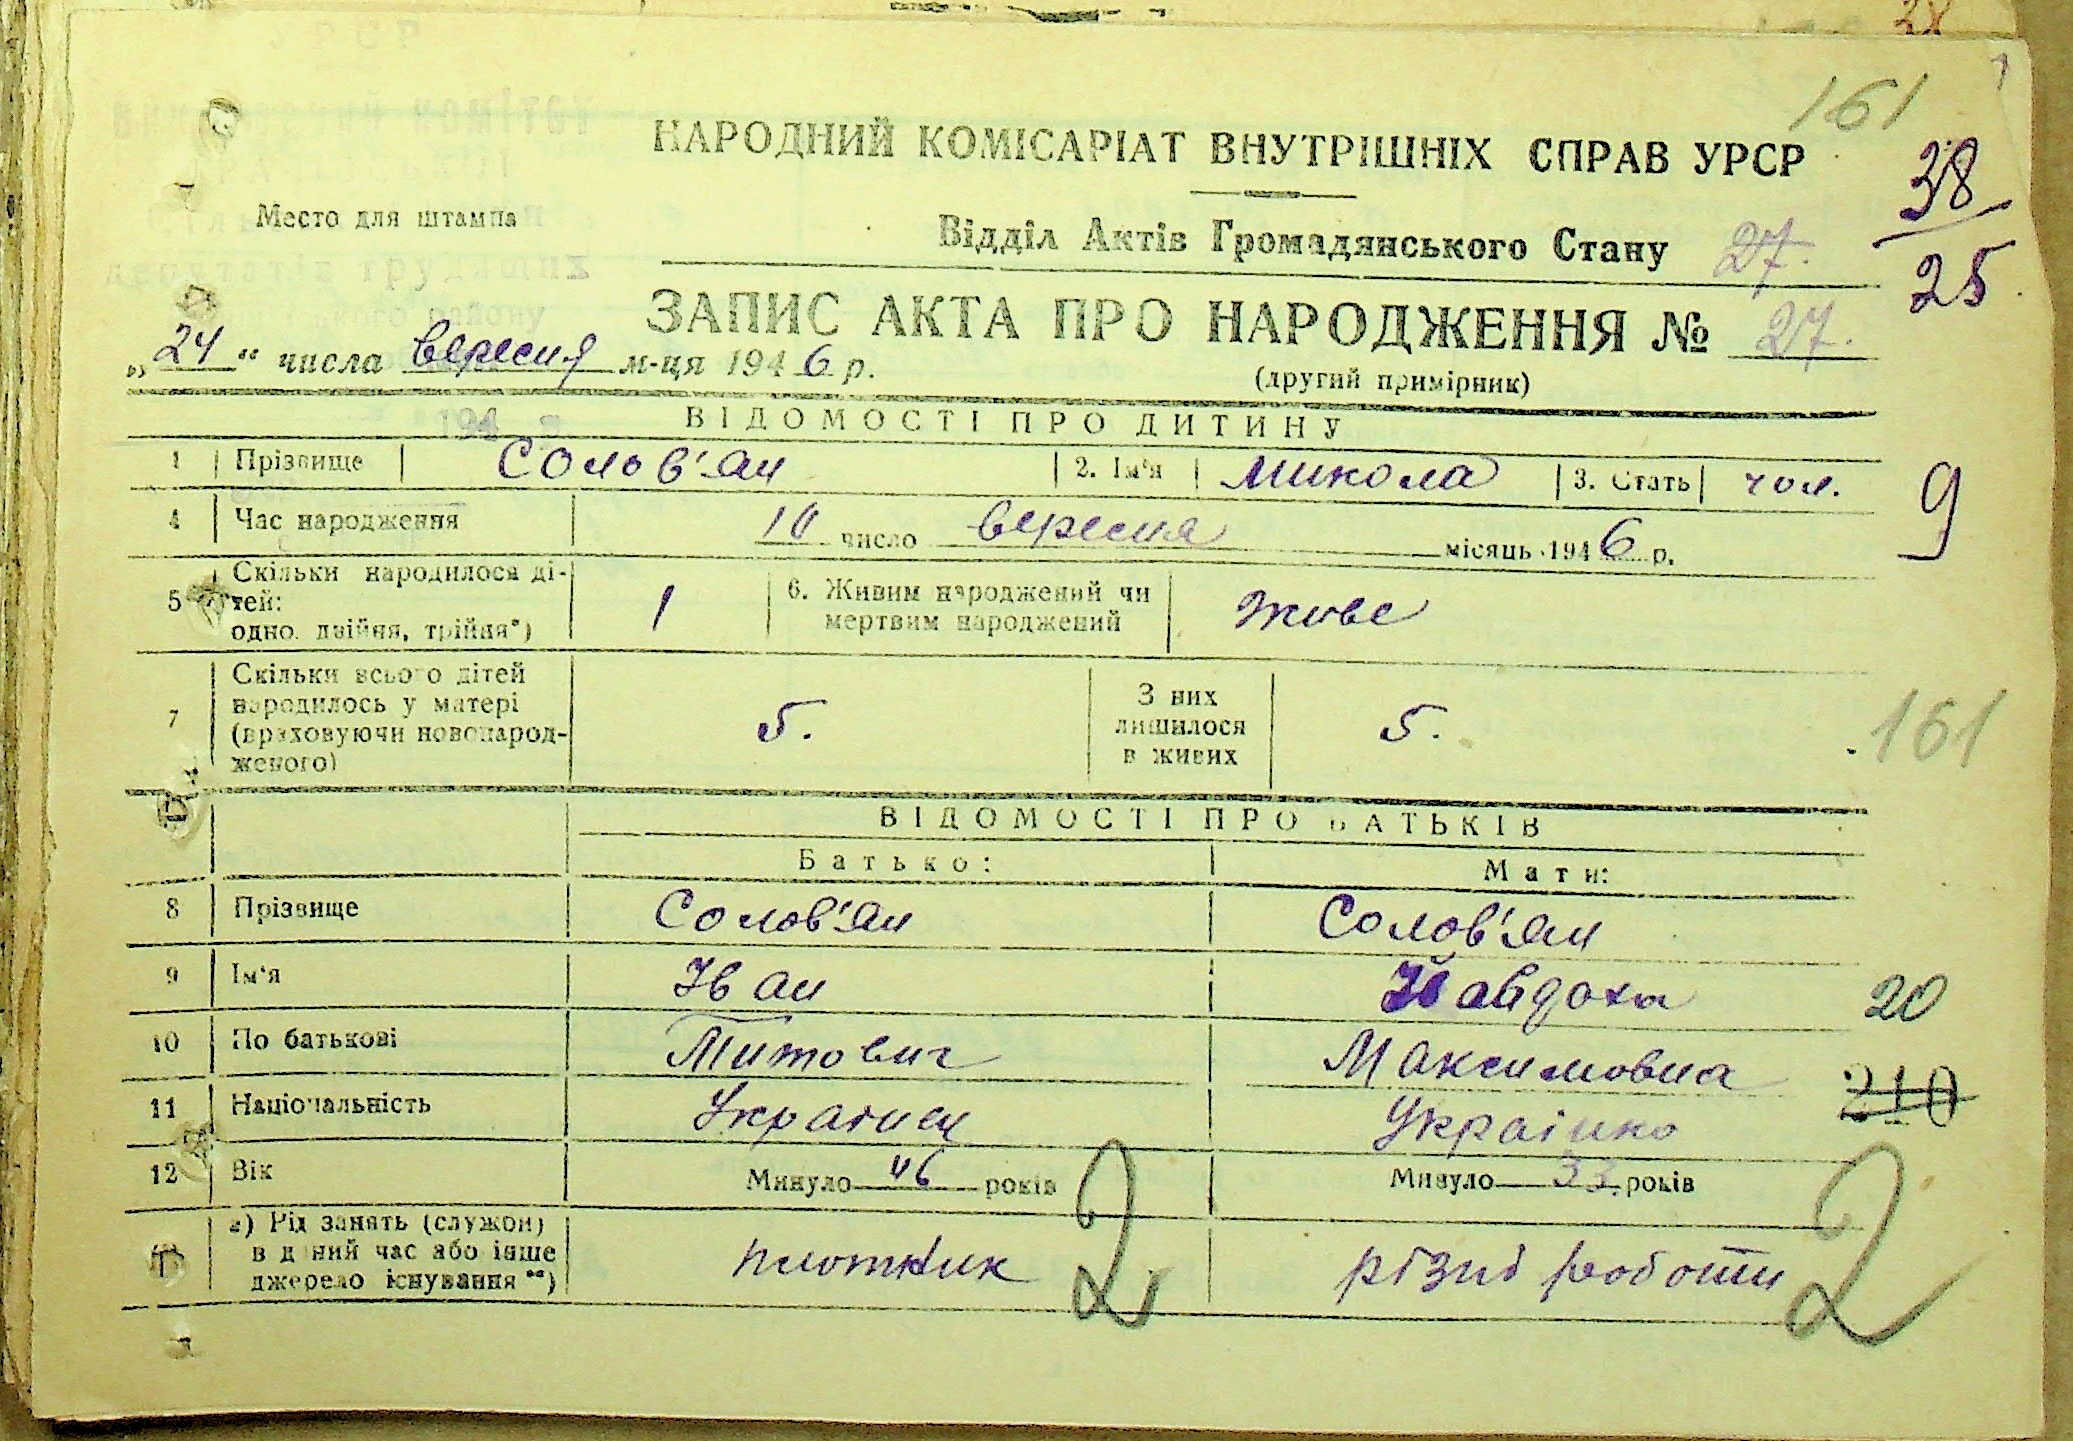 28
161
НАРОДНИЙ КОМІСАРІАТ ВНУТРІШНІХ СПРАВ УРСР
38
25
Место для штампа
Відділ Актів Громадянського Стану 27.
ЗАПИС АКТА ПРО НАРОДЖЕННЯ № 27.
„24“ числа вересня м-ця 1946 р.
(другий примірник)
ВІДОМОСТІ ПРО ДИТИНУ
1 Прізвище Солов'ян 2. Ім'я Микола 3. Стать чол.
9
4 Час народження 10 число вересня місяць 1946 р.
5 Скільки народилося ді-
тей:
одно, двійня, трійня*) 1 6. Живим народжений чи
мертвим народжений живе
7 Скільки всього дітей
народилось у матері
(враховуючи новонарод-
женого) 5. З них
лишилося
в живих 5.
161
ВІДОМОСТІ ПРО БАТЬКІВ
Батько: Мати:
8 Прізвище Солов'ян Солов'ян
9 Ім'я Іван Явдоха
20
10 По батькові Титович Максимовна
210
11 Національність Украінец Украінка
12 Вік Минуло 46 років Минуло 33 років
а) Рід занять (служби)
в даний час або інше
джерело існування**) плотник різні роботи
2 2